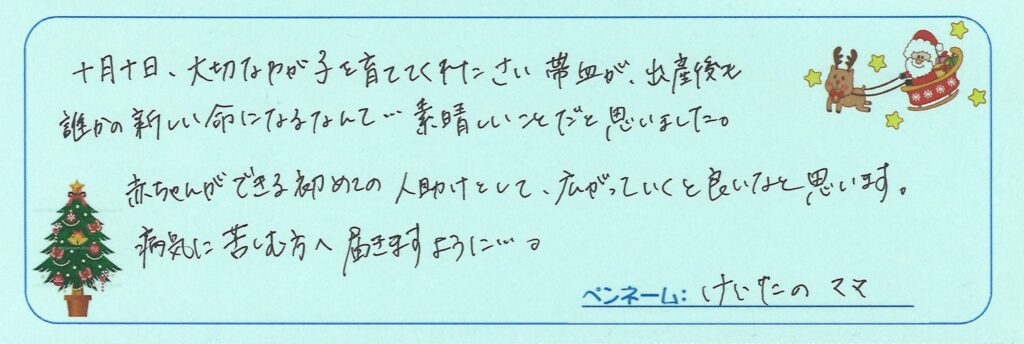 十月十日、大切なわが子を育ててくれたさい帯血が、出産後も
誰かの新しい命になるなんて… 素晴しいことだと思いました。
赤ちゃんができる初めての人助けとして、広がっていくと良いなと思います。
病気に苦しむ方へ届きますように…。
ペンネーム: のママ